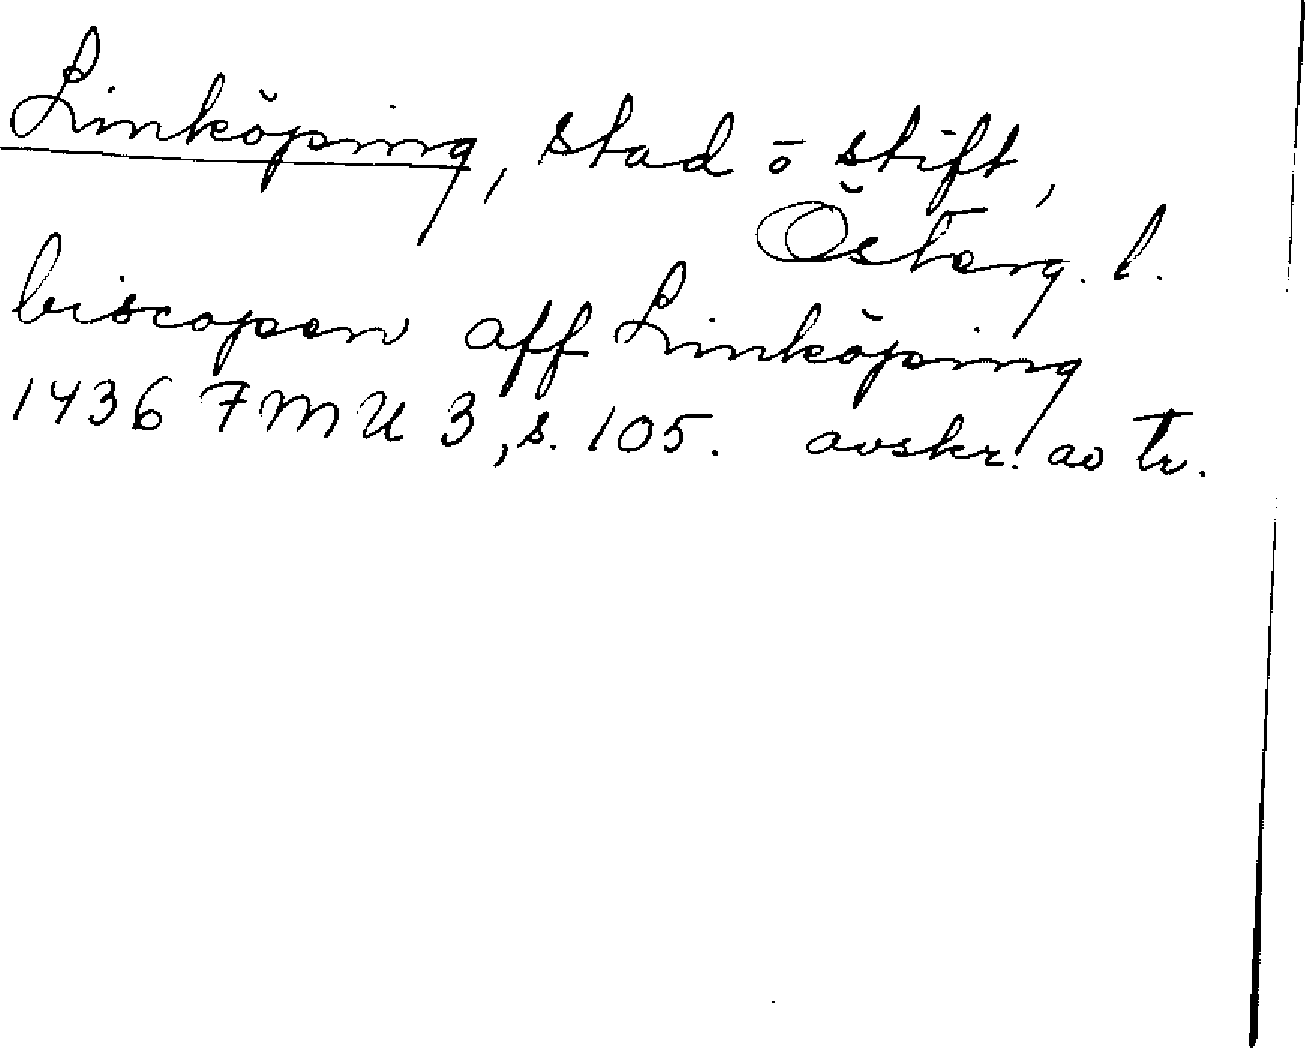 Linköping, stad ō stift,
Österg. l.
biscopen aff Linköping
1436 FMU 3, s. 105. avskr. av Tr.